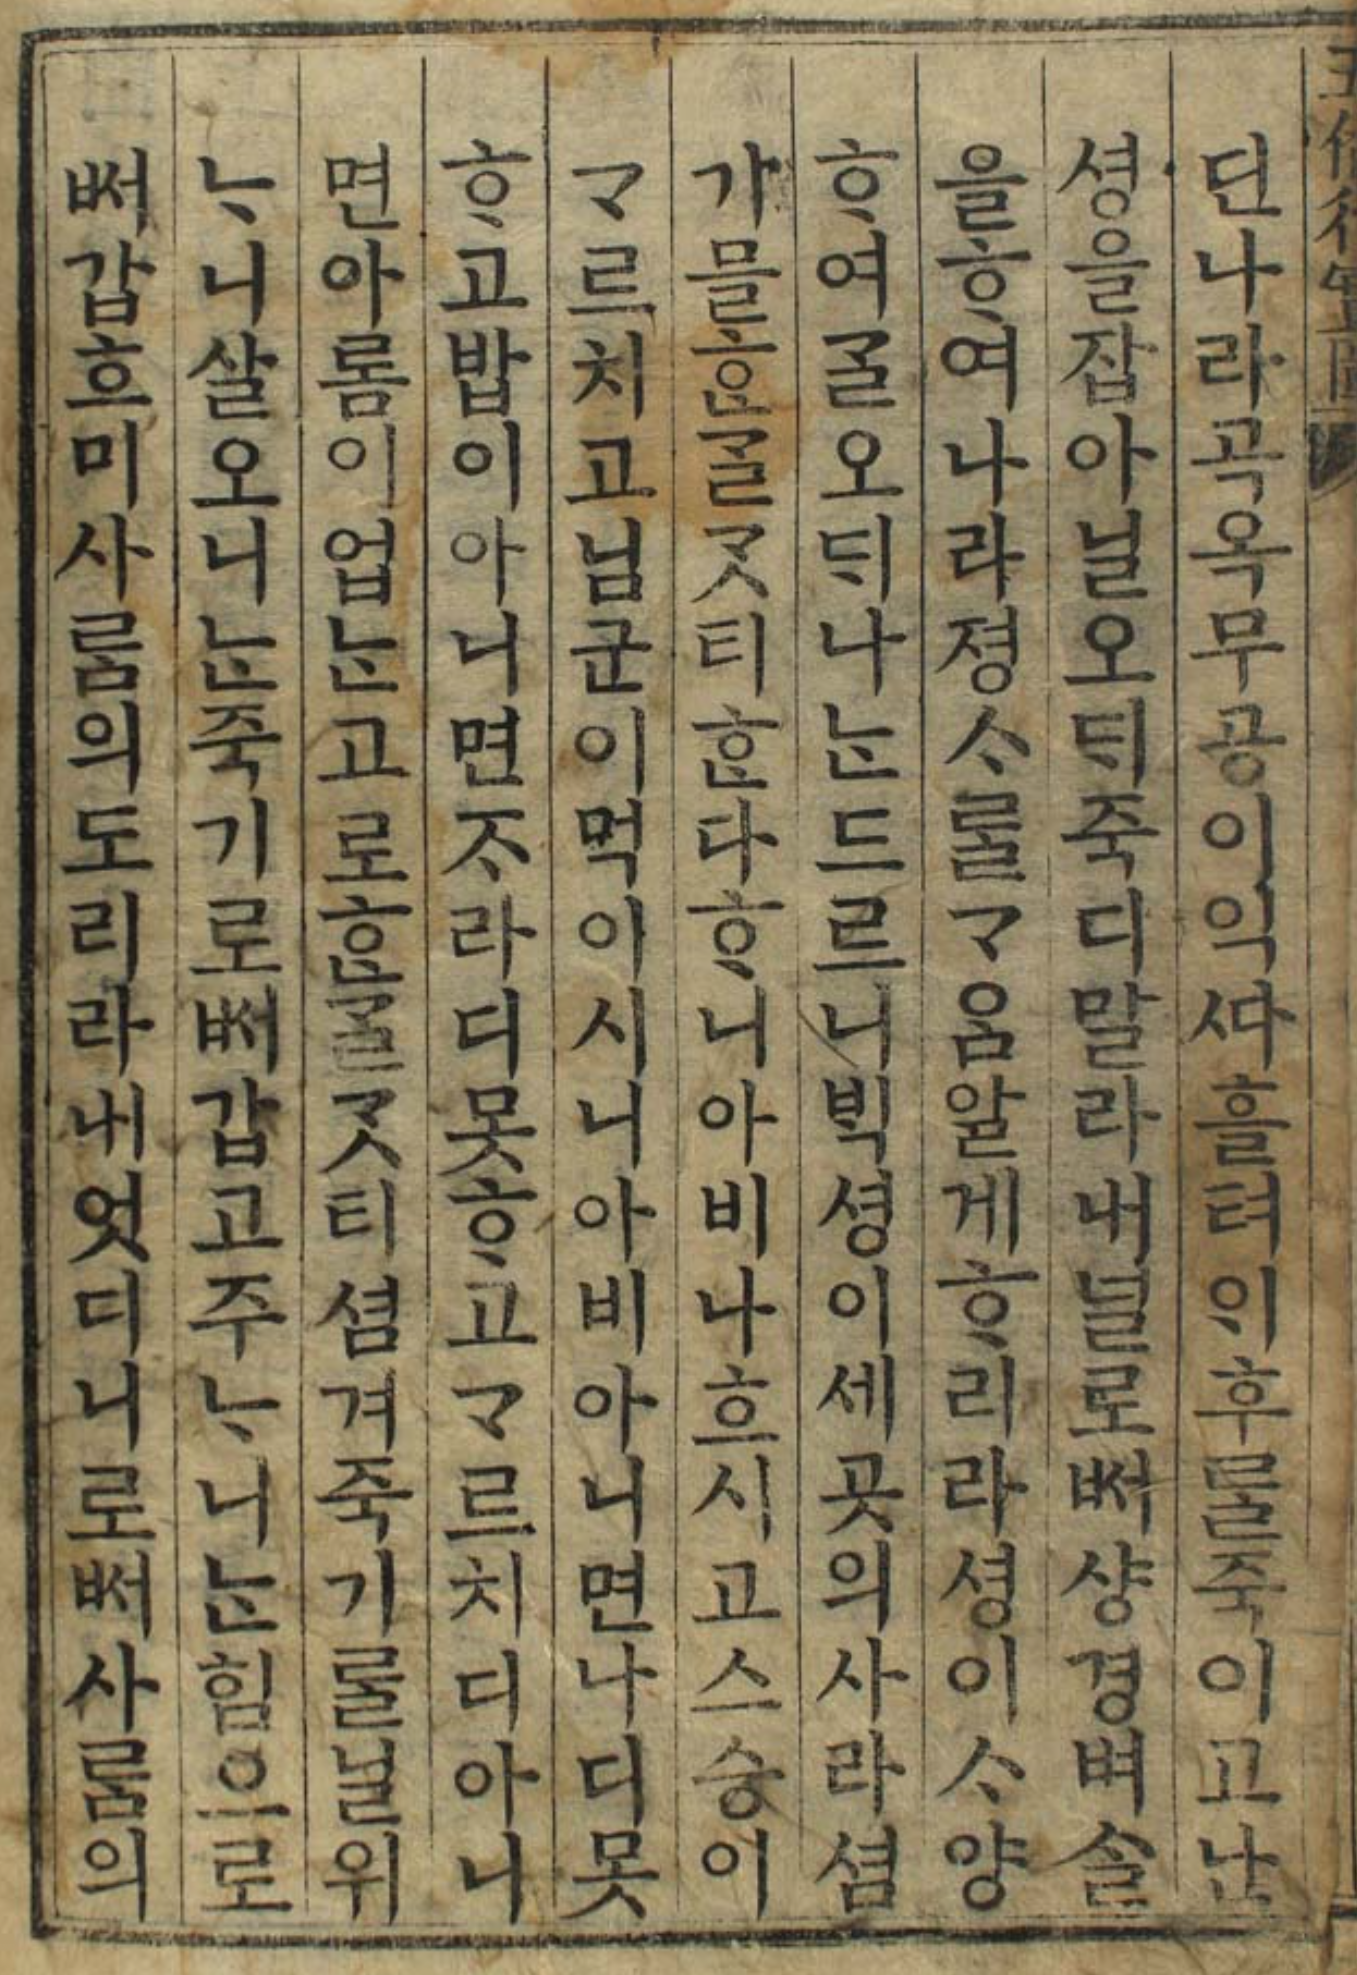 五倫行實圖
딘나라곡옥무공이익ᄯᅡ흘텨ᄋᆡ후ᄅᆞᆯ죽이고난
셩을잡아닐오ᄃᆡ죽디말라내널로ᄡᅥ샹경벼슬
을ᄒᆞ여나라졍ᄉᆞᄅᆞᆯᄀᆞ옴알게ᄒᆞ리라셩이ᄉᆞ양
ᄒᆞ여ᄀᆞᆯ오ᄃᆡ나ᄂᆞᆫ드르니ᄇᆡᆨ셩이세곳의사라셤
가믈ᄒᆞᆫᄀᆞᆯᄀᆞᆺ티ᄒᆞᆫ다ᄒᆞ니아비나흐시고스승이
ᄀᆞ르치고님군이먹이시니아비아니면나디못
ᄒᆞ고밥이아니면ᄌᆞ라디못ᄒᆞ고ᄀᆞ르치디아니
면아롬이업ᄂᆞᆫ고로ᄒᆞᆫᄀᆞᆯᄀᆞᆺ티셤겨죽기ᄅᆞᆯ널위
ᄂᆞ니살오니ᄂᆞᆫ죽기로ᄡᅥ갑고주ᄂᆞ니ᄂᆞᆫ힘으로
ᄡᅥ갑흐미사ᄅᆞᆷ의도리라내엇디니로ᄡᅥ사ᄅᆞᆷ의